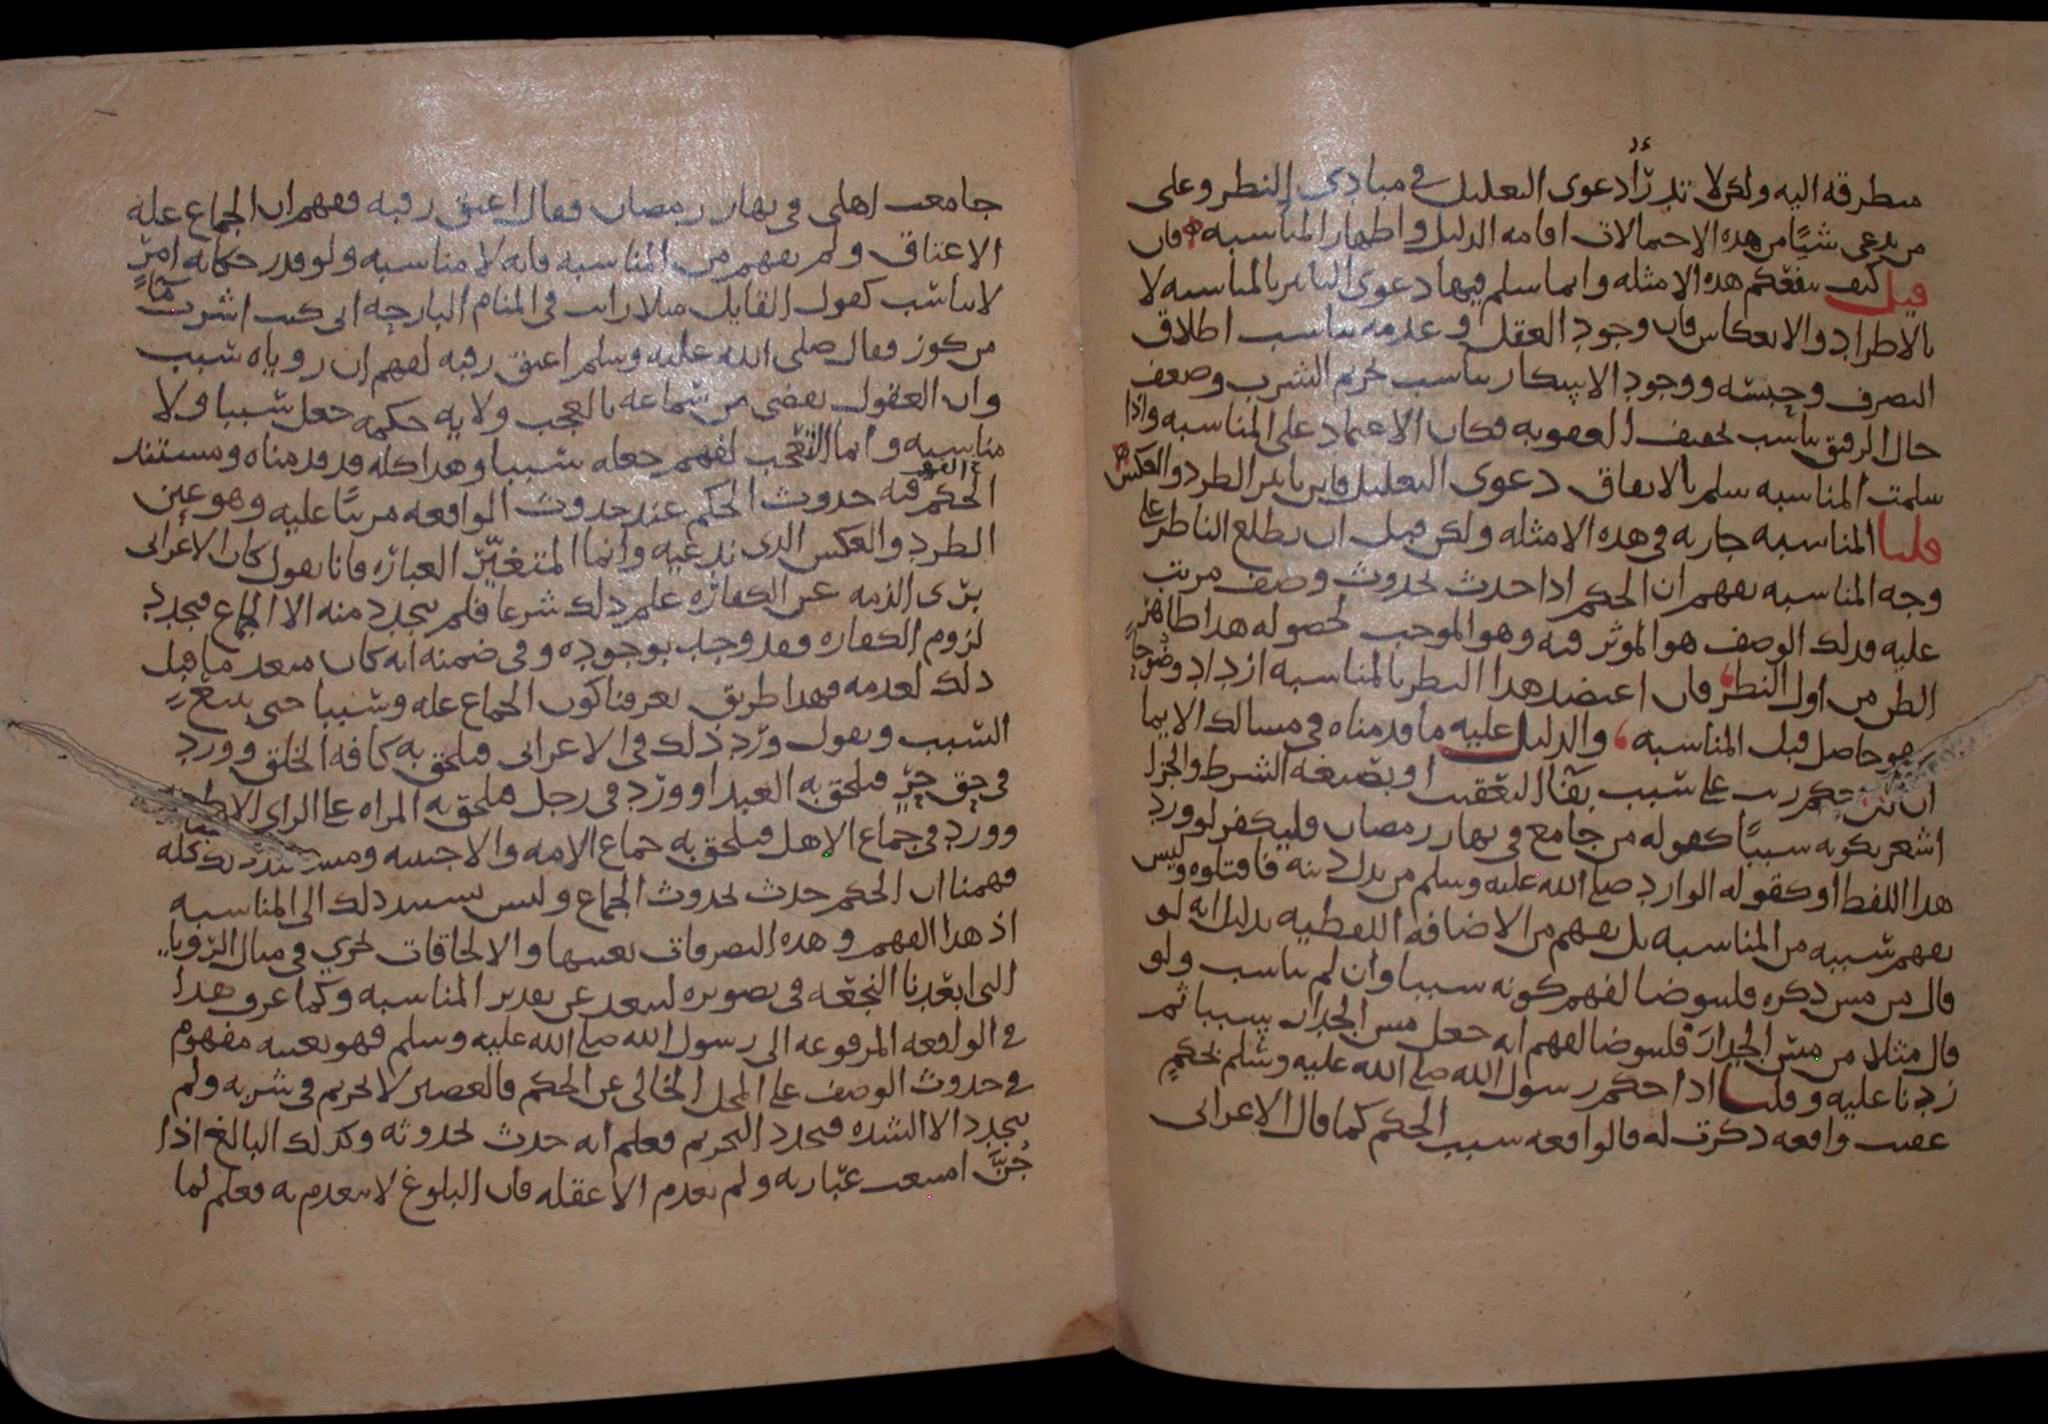 متطرقه اليه ولكن لا تدرأ دعوى التعليل في مبادى النظر وعلى
من يدعى شيًا من هذه الاحتمالات اقامه الدليل واظهار المناسبه فان
قيل كيف ينفعكم هذه الامثله وانما سلم فيها دعوى التاثير بالمناسبه لا
بالاطراد والانعكاس فان وجود العقل وعدمه يناسب اطلاق
التصرف وحبسه ووجود الاسكار يناسب تحريم الشرب وضعف
حال الرقيق يناسب تخفيف العقوبه فكان الاعتماد على المناسبه واذا
سلمت المناسبه سلم بالاتفاق دعوى التعليل فاين تاثير الطرد والعكس
قلنا المناسبه جاريه في هذه الامثله ولكن قبل ان يطلع الناظر على
وجه المناسبه يفهم ان الحكم اذا حدث بحدوث وصف مرتب
عليه فذلك الوصف هو الموثر فيه وهو الموجب لحصوله هذا ظاهر
الظن من اول النظر فان اعتضد هذا النظر بالمناسبه ازداد وضوحاً
هو حاصل قبل المناسبه والدليل عليه ما قدمناه في مسالك الايما
ان حكم رتب على سبب بفا التعقيب او بصيغه الشرط والجزا
اشعر بكونه سببًا كقوله من جامع في نهار رمضان فليكفر لو ورد
هذا اللفظ او كقوله الوارد صلى الله عليه وسلم من بدل دينه فاقتلوه وليس
يفهم سببه من المناسبه بل يفهم من الاضافه اللفظيه بدليل انه لو
قال من مس ذكره فليتوضا لفهم كونه سببا وان لم يناسب ولو
قال مثلا من مس الجدار فليتوضا لفهم انه جعل مس الجدار سببا ثم
زدنا عليه وقلنا اذا حكم رسول الله صلى الله عليه وسلم بحكمٍ
عقيب واقعه ذكرت له فالواقعه سبب الحكم كما قال الاعرابى
جامعت اهلى في نهار رمضان فقال اعتق رقبه ففهم ان الجماع عله
الاعتاق ولم يفهم من المناسبه فانه لا مناسبه ولو قدر حكايه امر
لا يناسب كقول القايل مثلا رايت في المنام البارحه انى كنت اشرب ماً
من كوز فقال صلى الله عليه وسلم اعتق رقبه لفهم ان روياه سبب
وان العقول يقضى من سماعه بالعجب ولايه حكمه جعل سببا ولا
مناسبه وانما التعجب لفهم جعله سببا وهذا كله قد قدمناه ومستند
الحكم فيه حدوث الحكم عند حدوث الواقعه مرتبًا عليه وهو عين
الطرد والعكس الذى ندعيه وانما المتغيّر العباره فانا نقول كان الاعرابى
برى الذمه عن الكفاره علم ذلك شرعا فلم يتجدد منه الا الجماع فتجدد
لزوم الكفاره فقد وجب بوجوده وفى ضمنه انه كان منعدما قبل
ذلك لعدمه فهذا طريق تعرفنا كون الجماع عله وسببا حتى
السبب ونقول ورد ذلك في الاعرابى فيلحق به كافه الخلق وورد
في حق حرٍ فيلحق به العبد او ورد في رجل فيلحق به المراه على الراى الاظهر
وورد في جماع الاهل فيلحق به جماع الامه والاجنبيه ومستند ذلك كله
فهمنا ان الحكم حدث بحدوث الجماع وليس يستند ذلك الى المناسبه
اذ هذا الفهم وهذه التصرفات بعينها والالحاقات تجري في مثال الرويا
التى ابعدنا النجعه في تصويره ليبعد عن تقدير المناسبه وكما عرف هذا
في الواقعه المرفوعه الى رسول الله صلى الله عليه وسلم فهو بعينه مفهوم
في حدوث الوصف على المحل الخالى عن الحكم فالعصير لا تحريم في شربه ولم
يتجدد الا الشده فتجدد التحريم فعلم انه حدث بحدوثه وكذلك البالغ اذا
جُنَّ امتنعت عباراته ولم يعدم الا عقله فان البلوغ لا ينعدم به فعلم لما